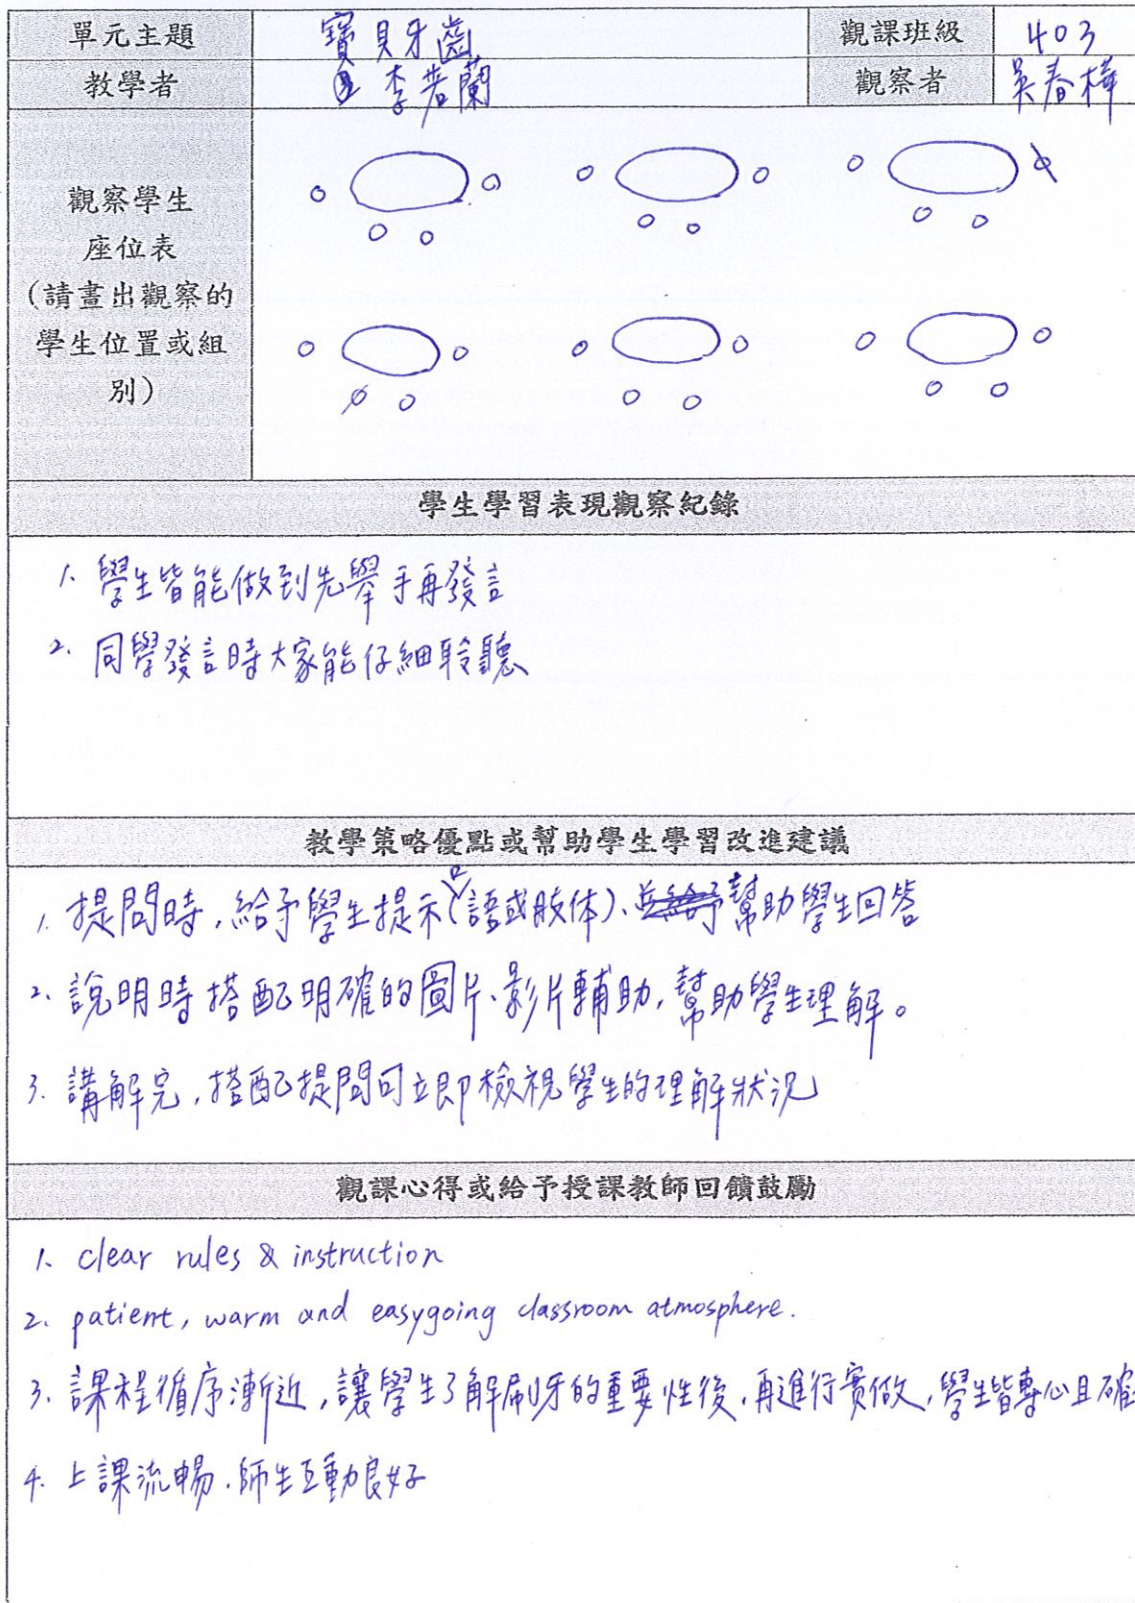 單元主題 寶貝牙齒 觀課班級 403
教學者 李若蘭 觀察者 吳春樺
觀察學生
座位表
(請畫出觀察的
學生位置或組
別)
學生學習表現觀察紀錄
1. 學生皆能做到先舉手再發言
2. 同學發言時大家能仔細聆聽
教學策略優點或幫助學生學習改進建議
1. 提問時,給予學生提示(口語或肢体)、幫助學生回答
2. 說明時搭配明確的圖片、影片輔助,幫助學生理解。
3. 講解完,搭配提問可立即檢視學生的理解狀況
觀課心得或給予授課教師回饋鼓勵
1. clear rules & instruction
2. patient, warm and easygoing classroom atmosphere.
3. 課程循序漸近,讓學生了解刷牙的重要性後,再進行實做,學生皆專心且確
4. 上課流暢.師生互動良好